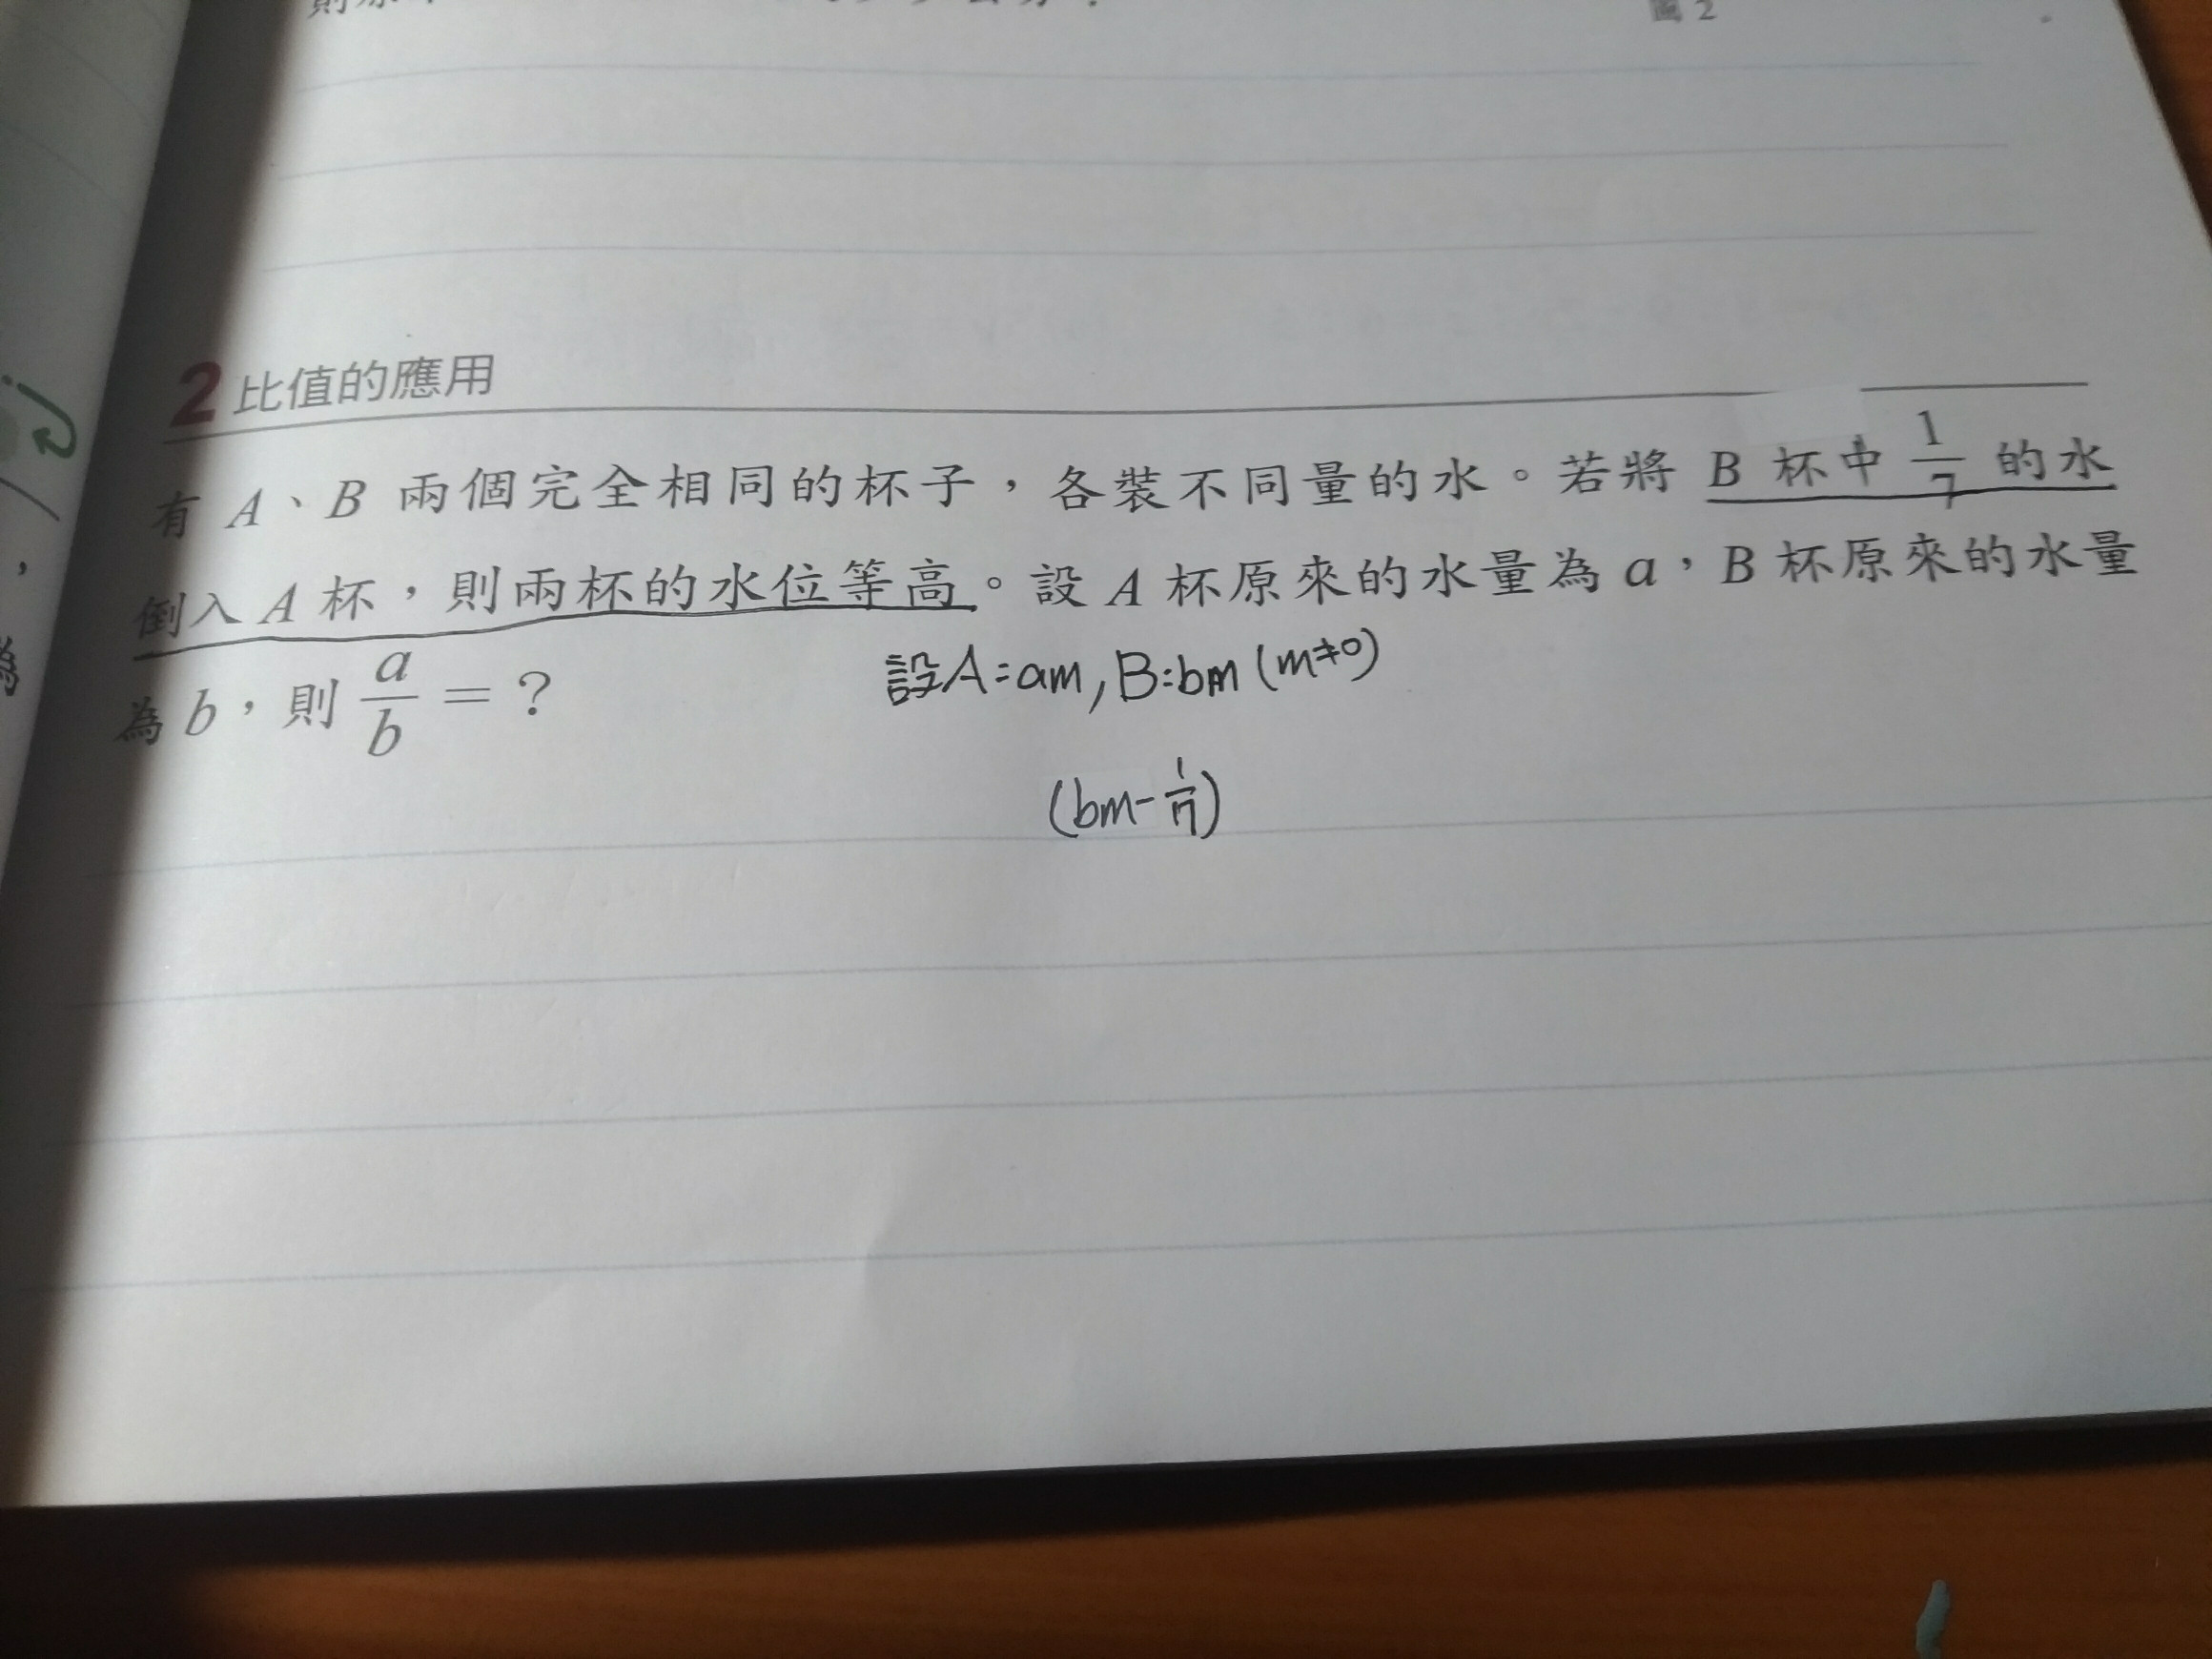 圖 2
2 比值的應用
有 A、B 兩個完全相同的杯子，各裝不同量的水。若將 B 杯中 1/7 的水
倒入 A 杯，則兩杯的水位等高。設 A 杯原來的水量為 a，B 杯原來的水量
為 b，則 a/b = ？
設A=am, B:bm (m≠0)
(bm-1/7)